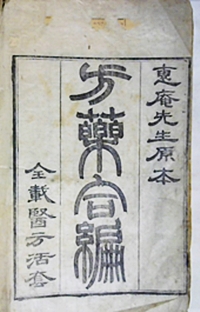 惠庵先生原本
方藥合編
全載醫方活套